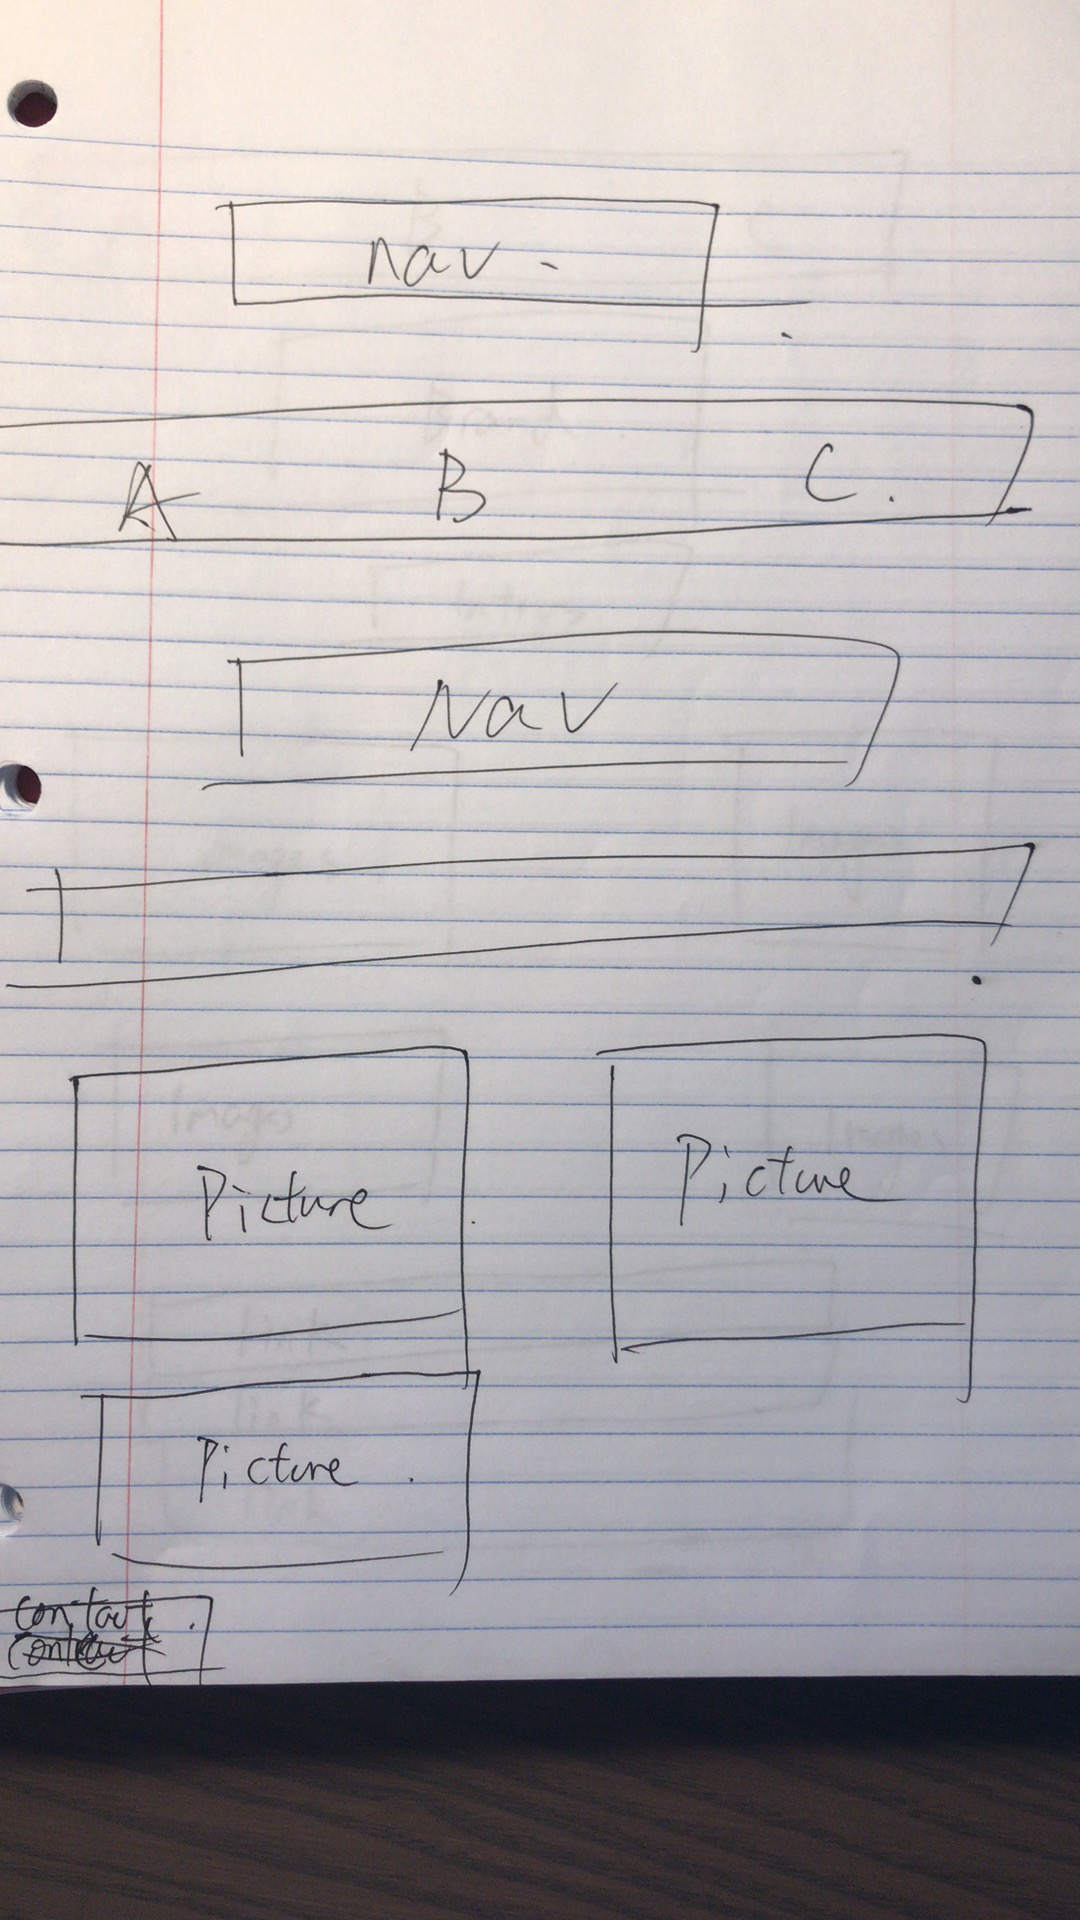 nav -
A B C.
Nav
Picture Picture
Picture .
contact